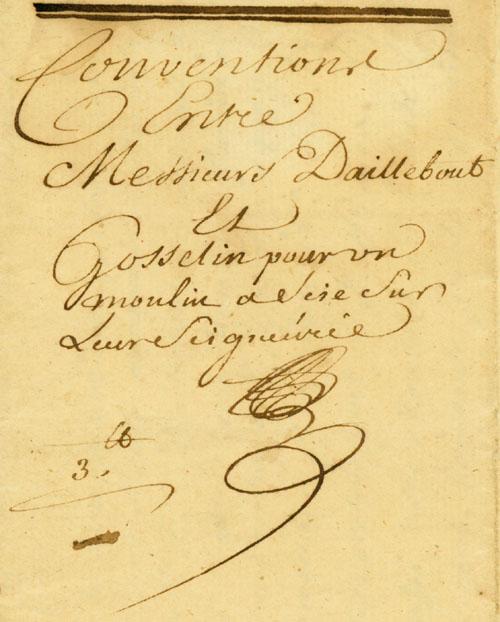 Conventions
Entre
Messieurs Daillebout
Et
Gosselin pour un
moulin a Scie Sur
Leur Seigneurie
3.